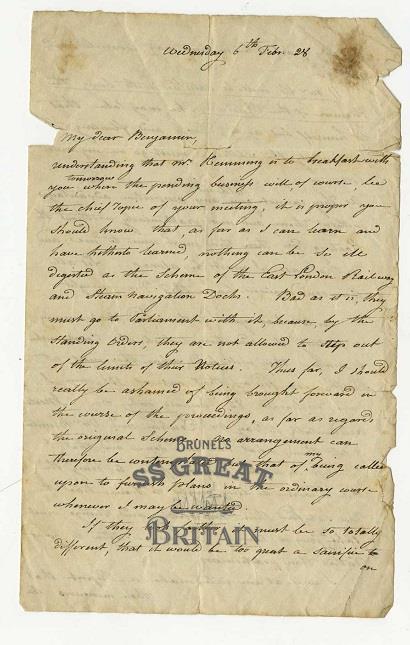 Wednesday 6th Febr. 28
My dear Benjamin,
understanding that Mr. Hemming is to breakfast with
you tomorrow where the pending business will, of course, be
the chief topic of your meeting, it is proper you
should know that, as far as I can learn and
have hitherto learned, nothing can be so ill
digested as the Scheme of the East London Railway
and Steam Navigation Docks. Bad as it is, they
must go to Parliament with it, because, by the
Standing Orders, they are not allowed to step out
of the limits of their Notices. Thus far, I should
really be ashamed of being brought forward in
the course of the proceedings, as far as regards
the original Scheme. No arrangement can
therefore be that of my being called
upon to furnish plans in the ordinary course
whenever I may be wanted
If they must be so totally
different, that it would be too great a sacrifice to
on
BRUNEL'S
SS GREAT
BRITAIN